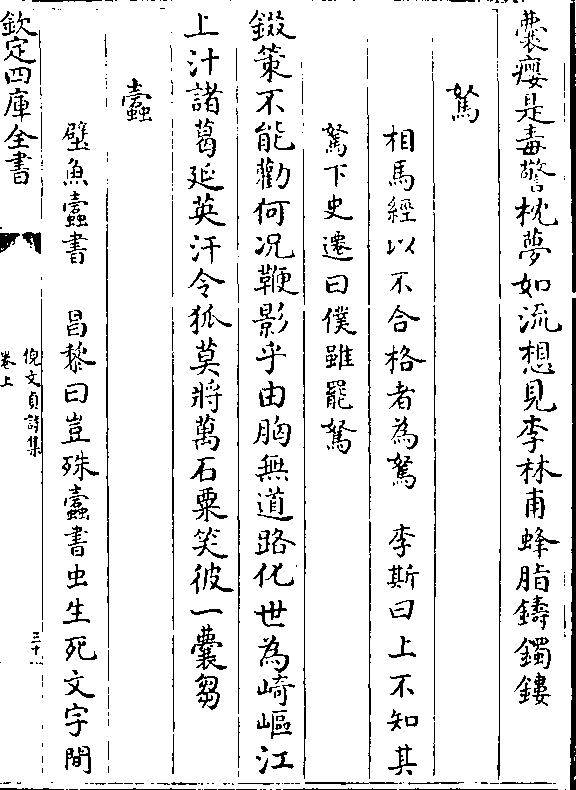 囊癭是毒警枕夢如流想見李林甫蜂脂鑄鐲鏤
駑
相馬經以不合格者為駑　李斯曰上不知其
駑下史遷曰僕雖罷駑
錣策不能勸何况鞭影乎由胸無道路化世為崎嶇江
上汁諸葛延英汗令狐莫將萬石粟笑彼一囊芻
蠹
壁魚蠹書　昌黎曰豈殊蠹書虫生死文字間
欽定四庫全書
倪文貞詩集
卷上
三十